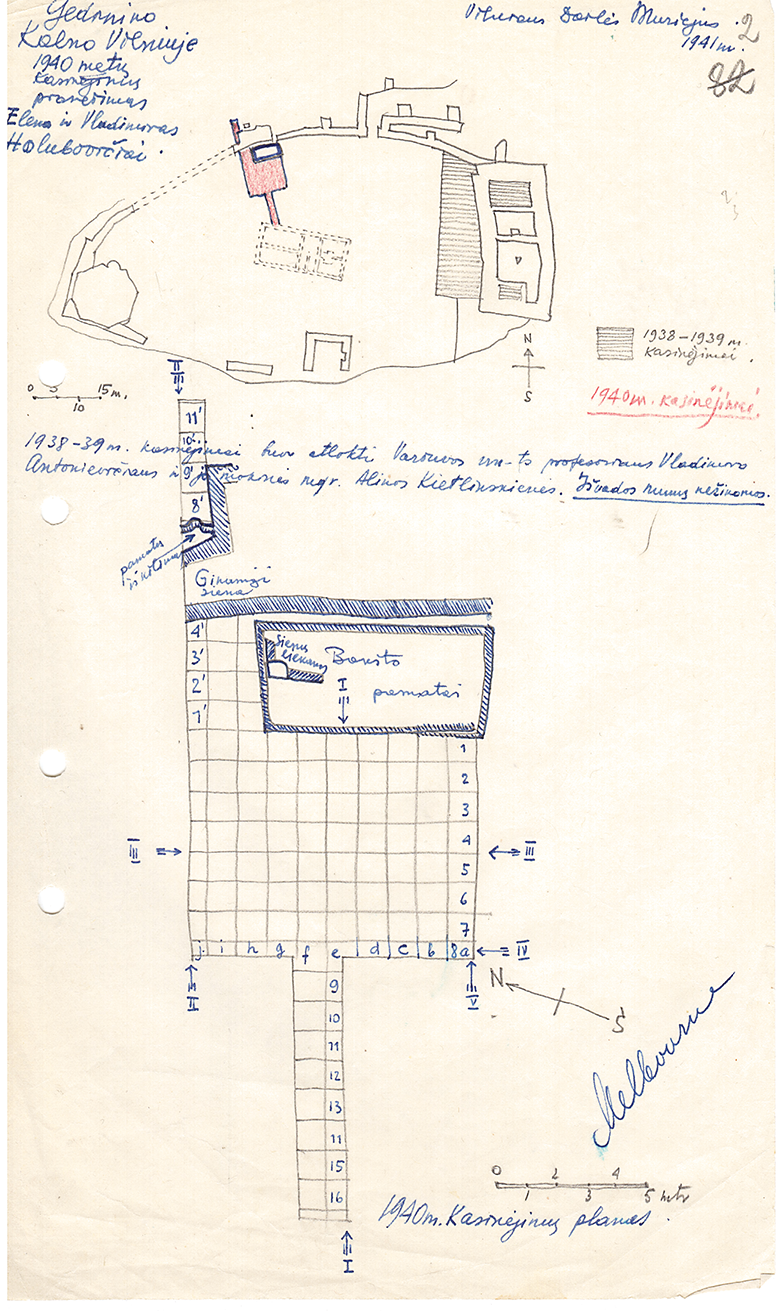 Gedmino
Kalno Vilniuje
1940 metų
kasinėjimus
pravedimas
Elena ir Vladimiras
Holubovičiai.
Vilniaus Dailės Muziejus.
1941 m.
2
82
N
S
1938-1939 m.
kasinėjimai.
1940 m. kasinėjimai.
0 5 15 m.
10
II
11'
10'
1938-39 m. kasinėjimai buvo atlikti Varšuvos un-to profesoriaus Vladimiro
9'
Antonievičiaus ir jo mgr. Alinos Kietlinskienės. Išvados mums nežinomos.
8'
pamatų
iškilimas
Gynimųjų
siena
4'
3'
2'
1'
Sienų
liekanos
Bokšto
pamatai
I
1
2
3
III
4
III
5
6
7
j i h g f e d c b 8a
IV
II
V
N
S
9
10
11
12
13
11
15
16
I
Melbourne
0 2 4
1 3 5 mtr
1940 m. Kasinėjimų planas.